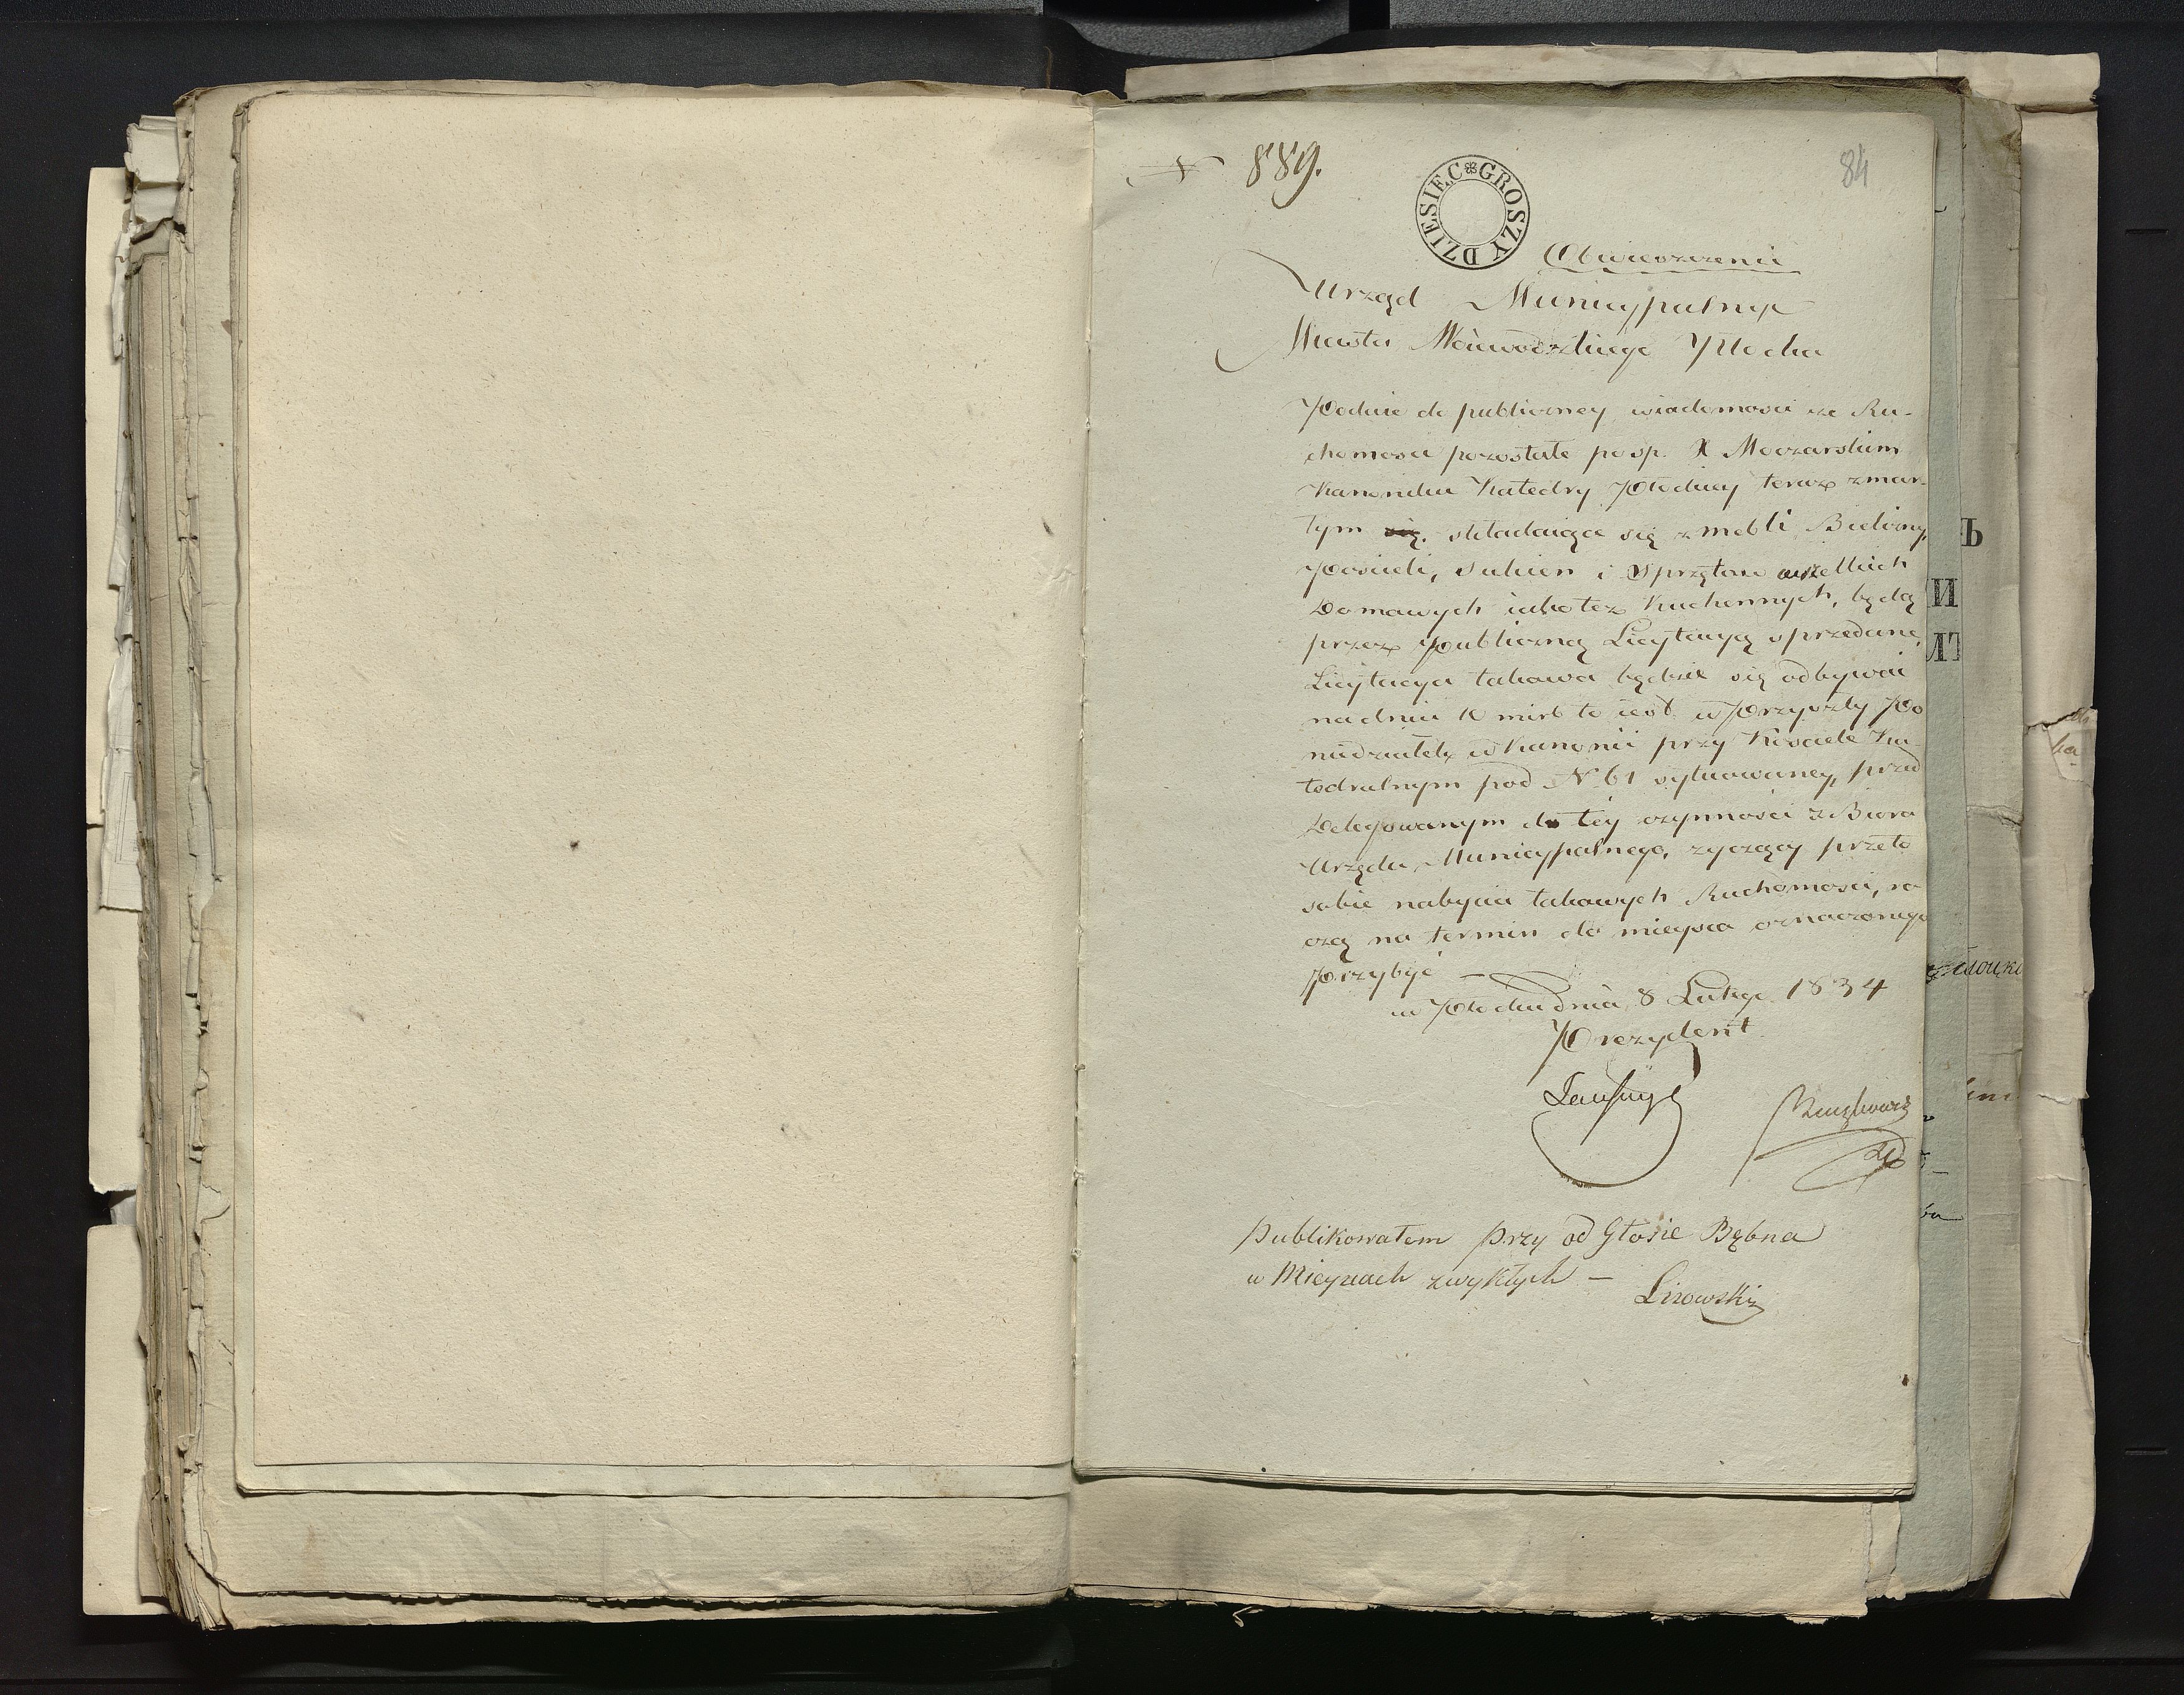 N 889.
84
DZIESIEC GROSZY
Obwieszczenie
Urząd Municypalny
Miasta Woiewodzkiego Płocka
Podaie do publiczney wiadomosci że Ru-
chomości pozostałe po sp. X Moczarskim
Kanoniku Katedry Płockiey teraz zmar-
łym składaiące się z mebli Bielizny,
Poscieli, Sukien i Sprzętow wszelkich
Domowych iako też Kuchennych, będą
przez Publiczną Licytacyą sprzedane,
Licytacya takowa będzie się odbywać
na dniu 10 mrb to iest w Przyszły Po
niedziałek w Kanonii przy Kosciele Ka-
tedralnym pod N 61 sytuowaney, przed
Delegowanym do tey czynności z Biora
Urzędu Municypalnego, życzący przeto
sobie nabycia takowych Ruchomosci, ra
czą na termin do mieysca oznaczonego
Przybyć —
w Płocku dnia 8 Lutego 1834
Prezydent
Publikowałem Przy od Głosie Bębna
w Mieyscach zwykłych —
Lisowski